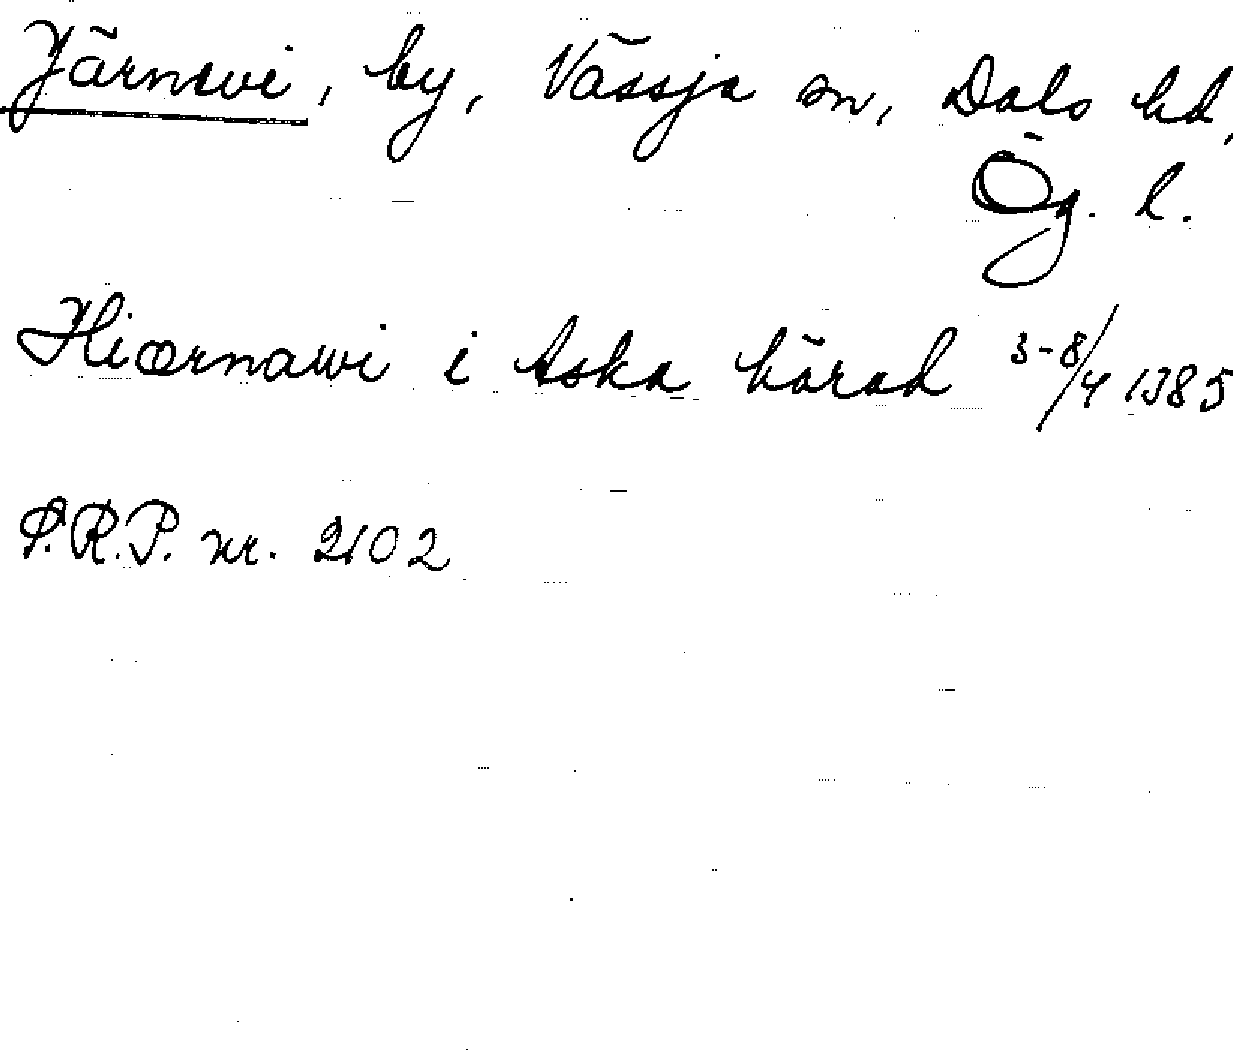 Järnevi, by, Vässja sn, Dals hd,
Ög. l.
Hiærnawi i Aska hårad 3-8/4 1385
S.R.P. nr. 2102